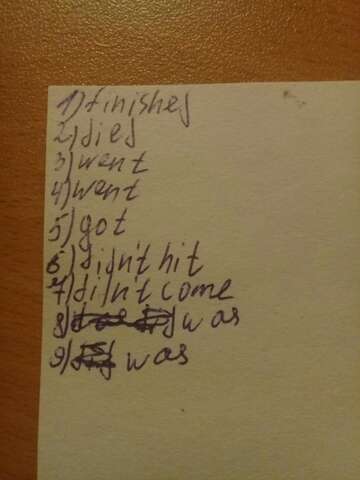 1) finished
2) died
3) went
4) went
5) got
6) didn't hit
7) didn't come
8) was
9) was